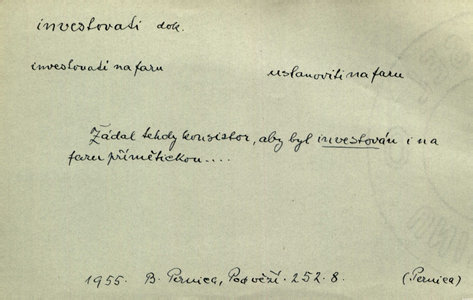 investovati dok.
investovati na faru ustanoviti na faru
Žádal tehdy konsistoř, aby byl investován i na
faru přímětickou....
1955. B. Pernica, Podvěží. 252. 8. (Pernica)